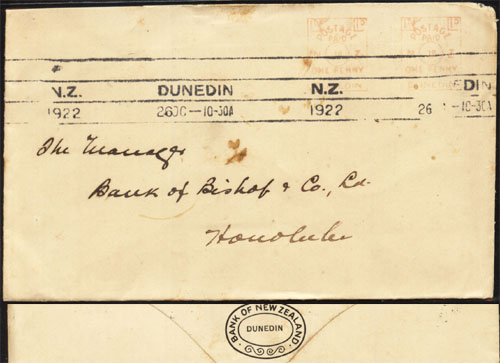 POSTAGE PAID
ONE PENNY
N.Z. DUNEDIN N.Z. EDIN
1922 26 DC—10-30A 1922 26 —10-30A
The Manager
Bank of Bishop & Co., Ld.
Honolulu
BANK OF NEW ZEALAND
DUNEDIN